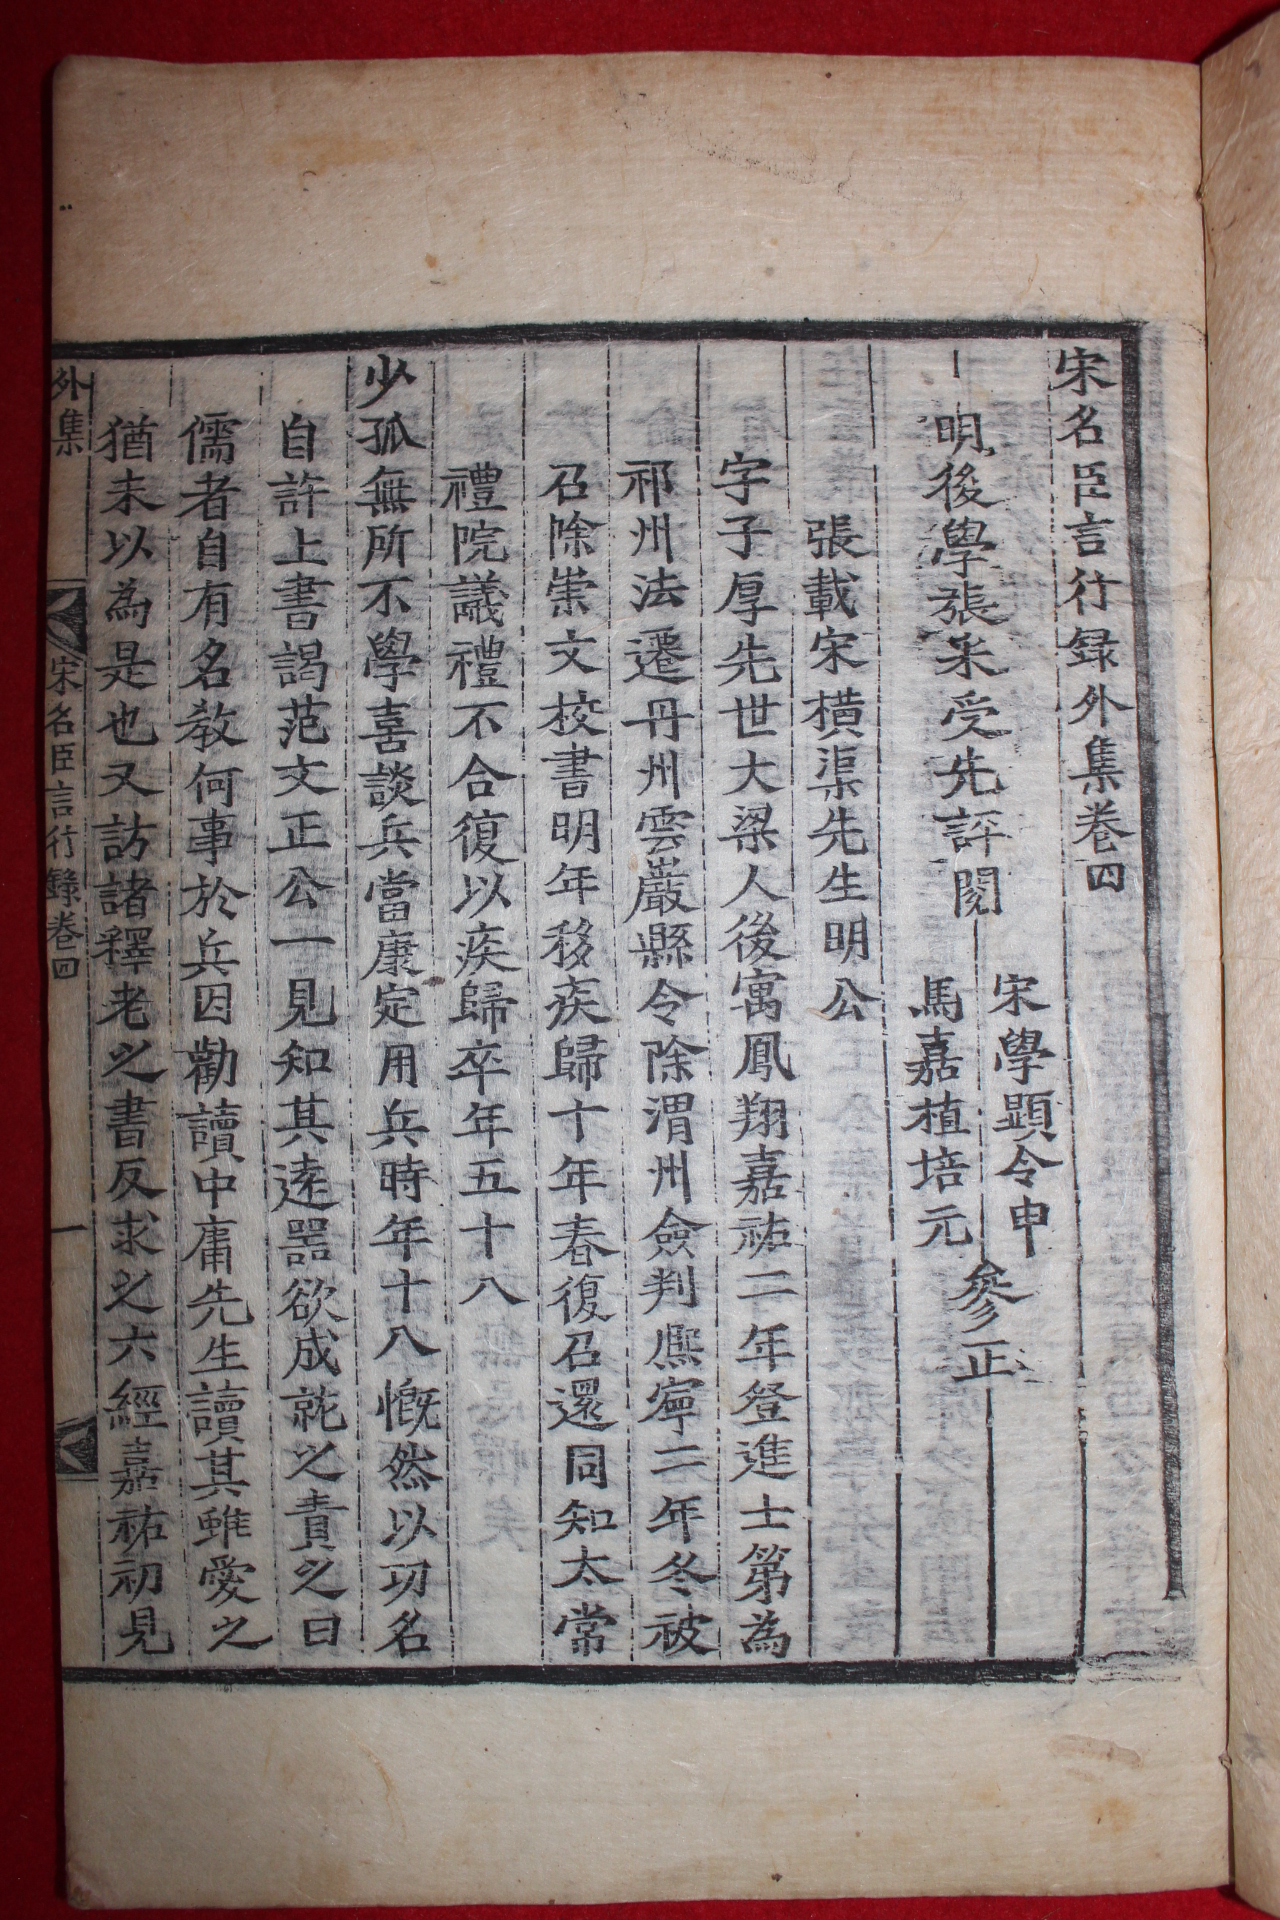 宋名臣言行録外集卷四
明後學張采受先評閱
宋學顕令申
馬嘉植培元
參正
張載宋橫渠先生明公
字子厚先世大梁人後寓鳳翔嘉祐二年登進士第為
祁州法遷丹州雲巖縣令除渭州僉判熈寧二年冬被
召除崇文校書明年移疾歸十年春復召還同知太常
禮院議禮不合復以疾歸卒年五十八
少孤無所不學喜談兵當康定用兵時年十八慨然以功名
自許上書謁范文正公一見知其遠噐欲成就之責之曰
儒者自有名教何事於兵因勸讀中庸先生讀其雖愛之
猶未以為是也又訪諸釋老之書反求之六經嘉祐初見
外集 宋名臣言行錄卷四 一